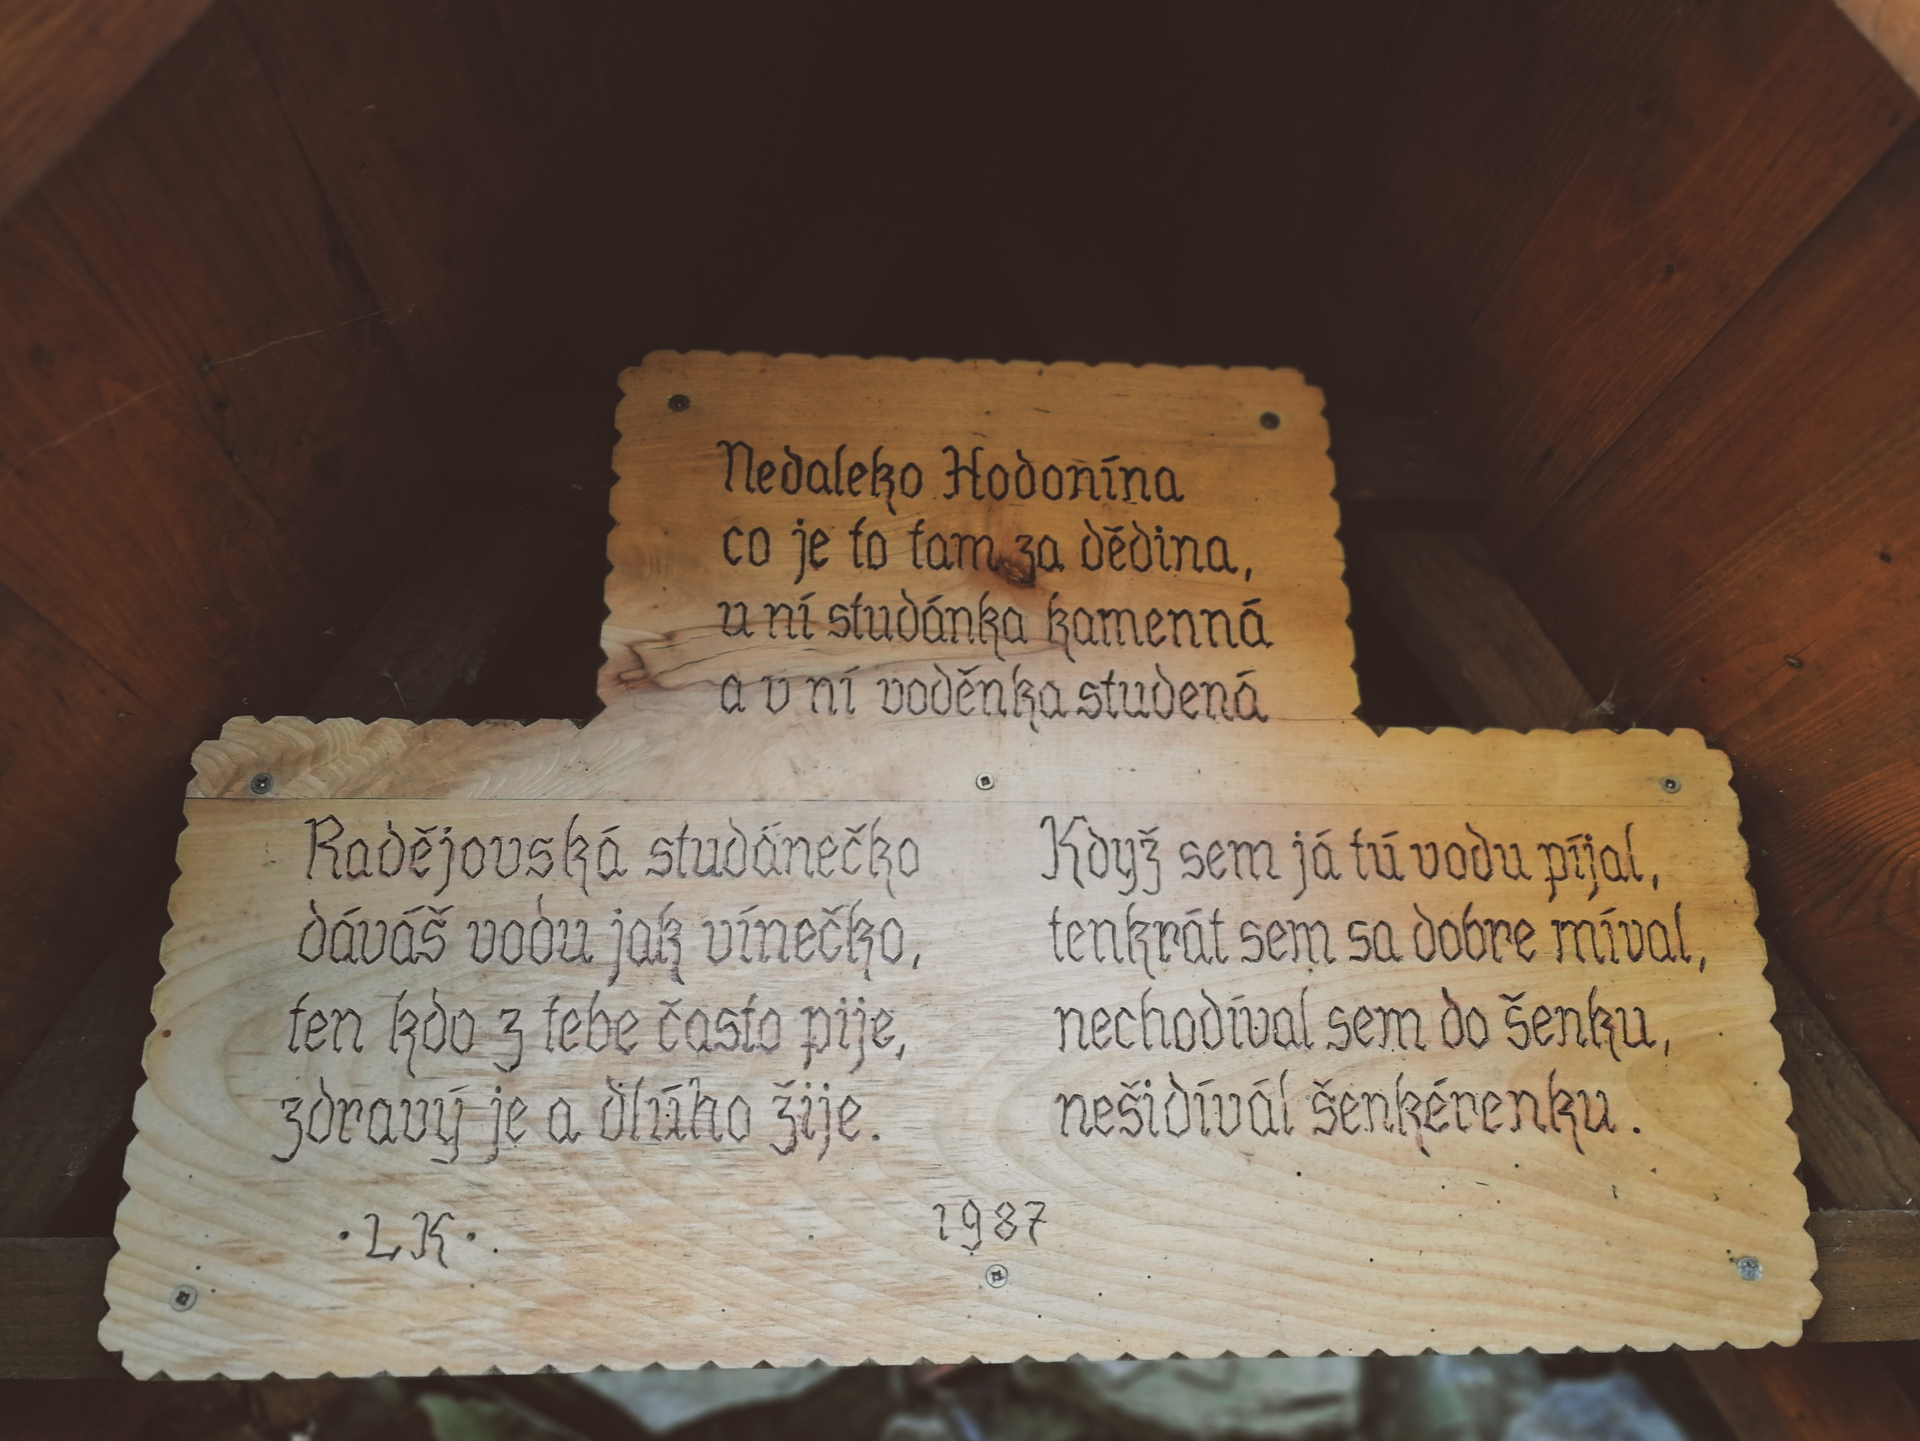 Nedaleko Hodonína
co je to tam za dědina,
u ní studánka kamenná
a v ní voděnka studená
Radějovská studánečko
dáváš vodu jak vínečko,
ten kdo z tebe často pije,
zdravý je a dlúho žije.
Když sem já tú vodu píjal,
tenkrát sem sa dobre míval,
nechodíval sem do šenku,
nešidívál šenkérenku.
·LK·
1987